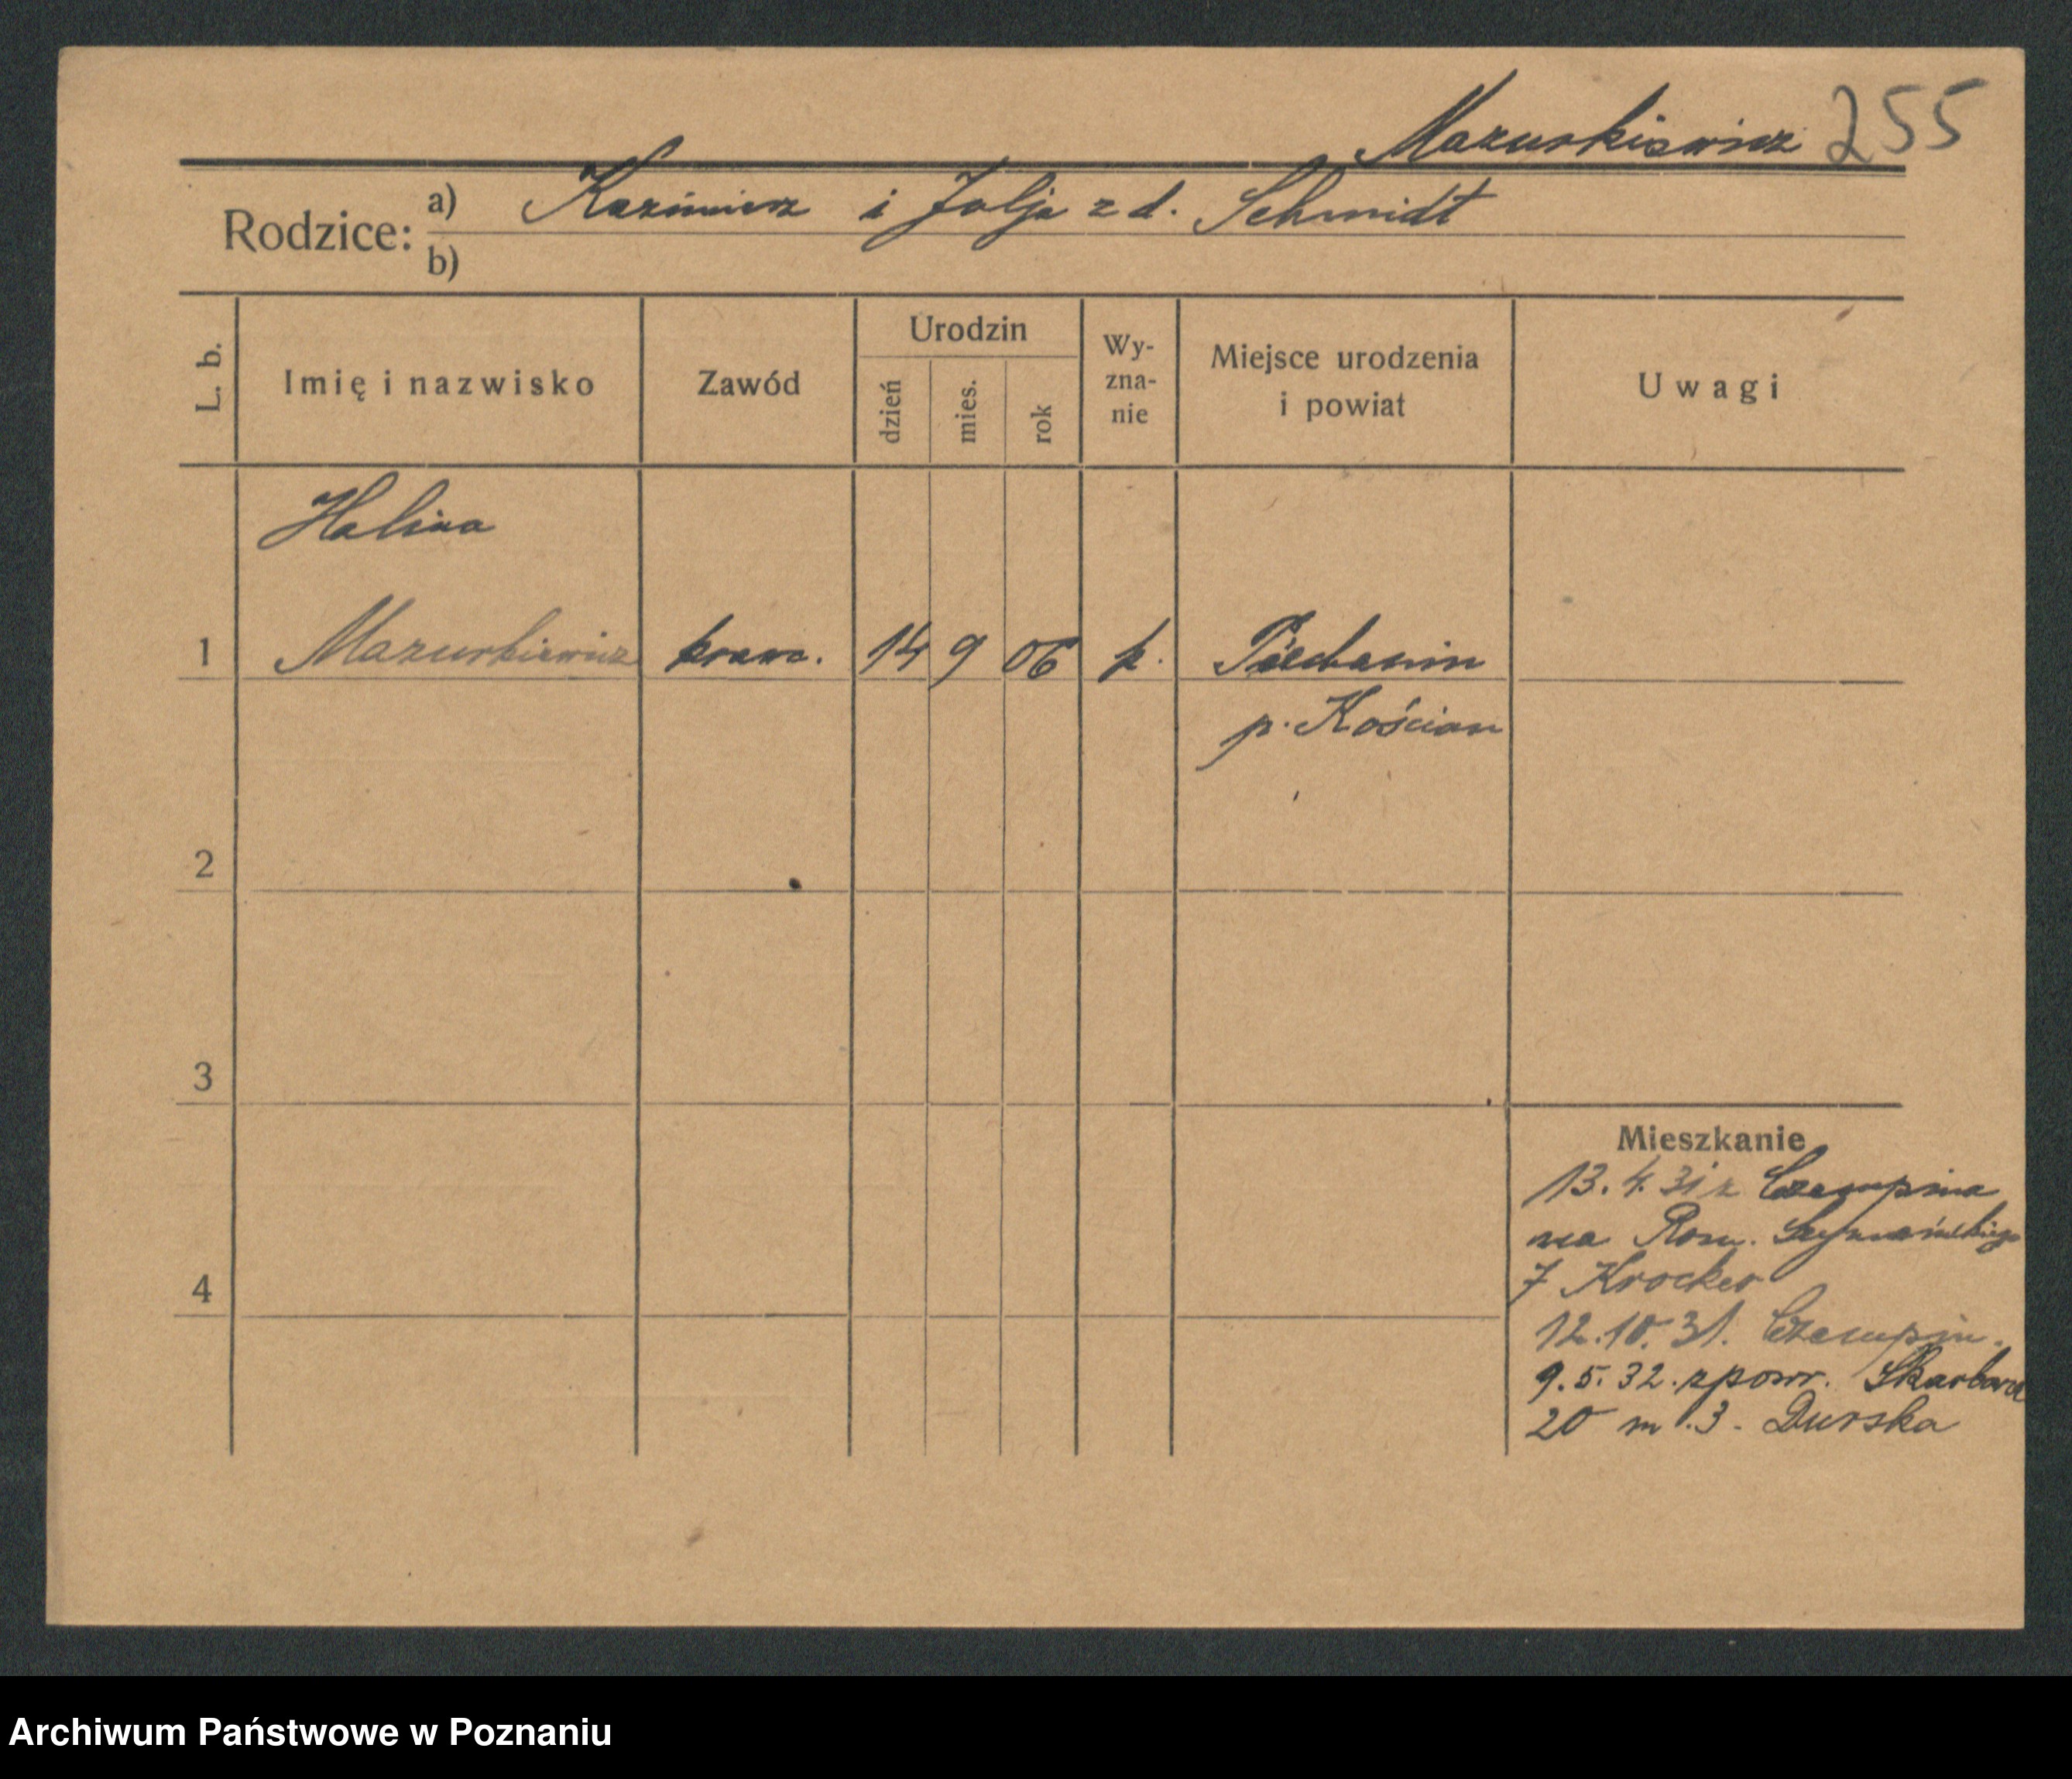 Mazurkiewicz 255
Rodzice: a) Kazimierz i Julja z d. Schmidt
b)
L. b. Imię i nazwisko Zawód Urodzin dzień mies. rok Wy-zna-nie Miejsce urodzenia i powiat Uwagi
Halina
1 Mazurkiewicz krawc. 14 9 06 k. Piechanin
p. Kościan
2
3
Mieszkanie
13.4.31 z Czempinia
na Rom. Szymańskiego
4 7 Krocker
12.10.31. Czempiń.
9.5.32. zpowr. Skarbowa
20 m. 3. Durska
Archiwum Państwowe w Poznaniu